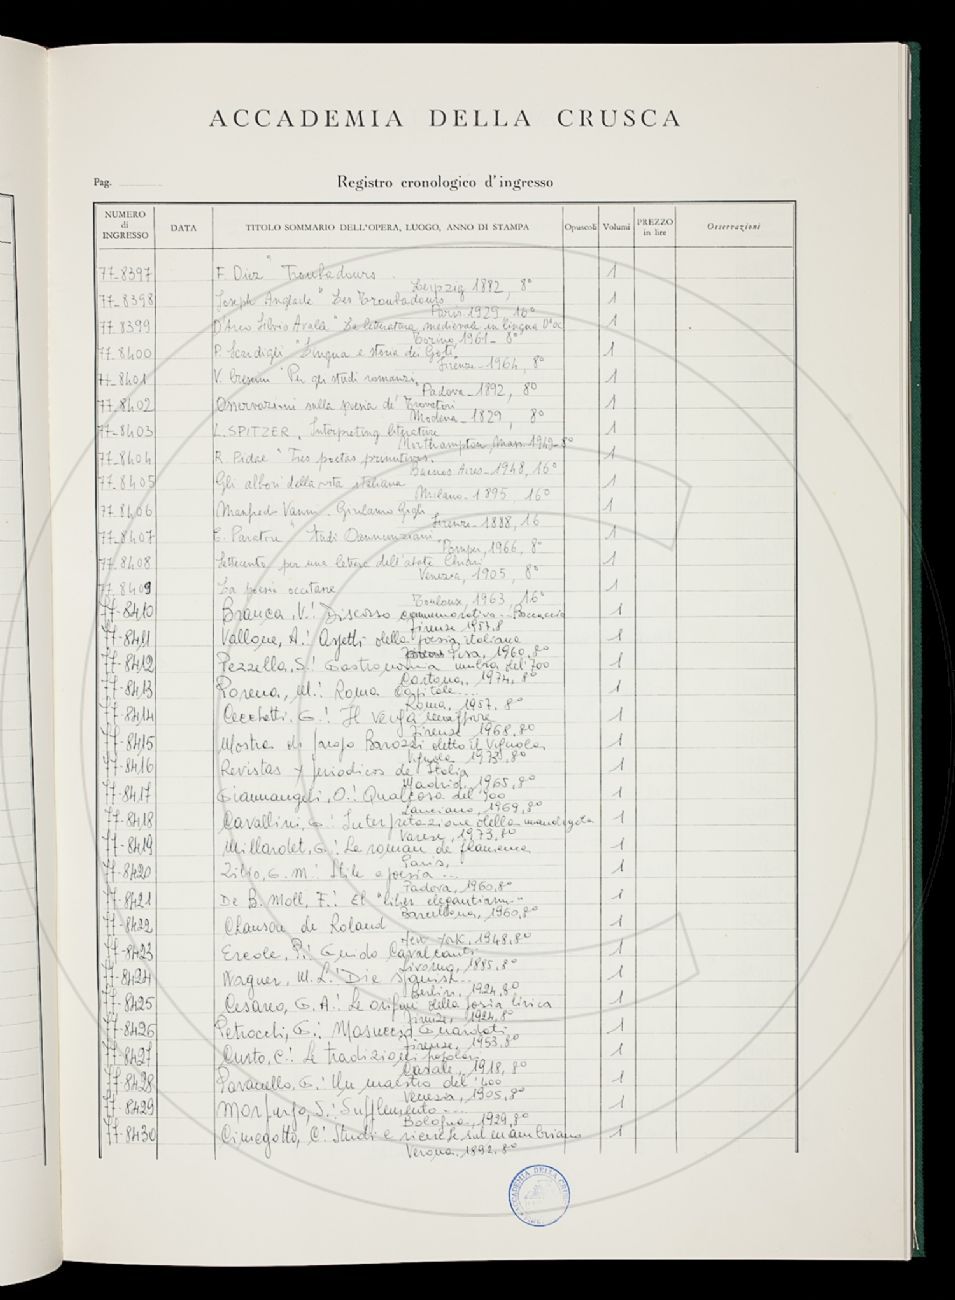 ACCADEMIA DELLA CRUSCA
Pag.
Registro cronologico d'ingresso
NUMERO di INGRESSO DATA TITOLO SOMMARIO DELL'OPERA, LUOGO, ANNO DI STAMPA Opuscoli Volumi PREZZO in lire Osservazioni
77-8397 F. Diez "Troubadours. 1
Leipzig 1882, 8°
77-8398 Joseph Anglade "Les Troubadours 1
Paris 1929, 16°
77-8399 D'Arco Silvio Avalle "La letteratura medievale in lingua d'oc 1
Torino, 1961- 8°
77-8400 P. Scardigli "Lingua e storia dei Goti. 1
Firenze-1964, 8°
77-8401 V. Crescini "Per gli studi romanzi. 1
Padova-1892, 8°
77-8402 Osservazioni sulla poesia de' Trovatori 1
Modena-1829, 8°
77-8403 L. SPITZER, Interpreting literature 1
Northampton, Mass. 1949-8°
77-8404 R. Pidal "Tres poetas primitivos. 1
Buenos Aires-1948, 16°
77-8405 Gli albori della vita italiana 1
Milano-1895, 16°
77-8406 Manfredo Vanni. Girolamo Gigli 1
Firenze-1888, 16
77-8407 E. Paratore "Studi Dannunziani. 1
1966, 8°
77-8408 Settecento per una lettera dell'abate Chiari 1
Venezia, 1905, 8°
77-8409 La poesie occitane 1
Toulouse, 1963, 16°
77-8410 Branca, V.: Discorso commemorativo.. Boccaccio 1
Firenze 1957.8
77-8411 Vallone, A.: Aspetti della poesia italiana 1
Pisa, 1960, 8°
77-8412 Pezzella, S.: Gastronomia umbra del '700 1
Cortona, 1974, 8°
77-8413 M.: Roma Capitale.... 1
Roma, 1957, 8°
77-8414 Cecchetti, G.: Il Verga maggiore 1
Firenze 1968, 8°
77-8415 Mostra di Barozzi detto il Vignola 1
Vignola 1973, 8°
77-8416 Revistas y periodicos de Italia 1
Madrid, 1965, 8°
77-8417 Giannangeli, O.: Qualcosa del '900 1
Lanciano, 1969, 8°
77-8418 Cavallini, G.: Interpretazione della mandragola 1
Varese, 1973, 8°
77-8419 Millardet, G.: Le roman de flamenca 1
Paris,
77-8420 Zilio, G. M.: Stile e poesia ... 1
Padova, 1960, 8°
77-8421 De B. Moll, F.: El "liber elegantiarum" 1
Barcellona, 1960, 8°
77-8422 Chanson de Roland 1
New York, 1948, 8°
77-8423 Ercole, P.: Guido Cavalcanti 1
Livorno, 1885, 8°
77-8424 Wagner, M. L.: Die spanisch... 1
Berlin, 1924, 8°
77-8425 Cesareo, G. A.: Le origini della poesia lirica 1
Firenze, 1924, 8°
77-8426 Petrocchi, G.: Masuccio Guardati 1
Firenze, 1953, 8°
77-8427 C.: Le tradizioni popolari 1
Casale, 1918, 8°
77-8428 G.: Un maestro del '400 1
Venezia, 1905, 8°
77-8429 Morpurgo, S.: Supplemento ... 1
Bologna, 1929, 8°
77-8430 Cimegotto, C: Studi e ricerche sul mambriano 1
Verona, 1892, 8°
ACCADEMIA DELLA CRUSCA